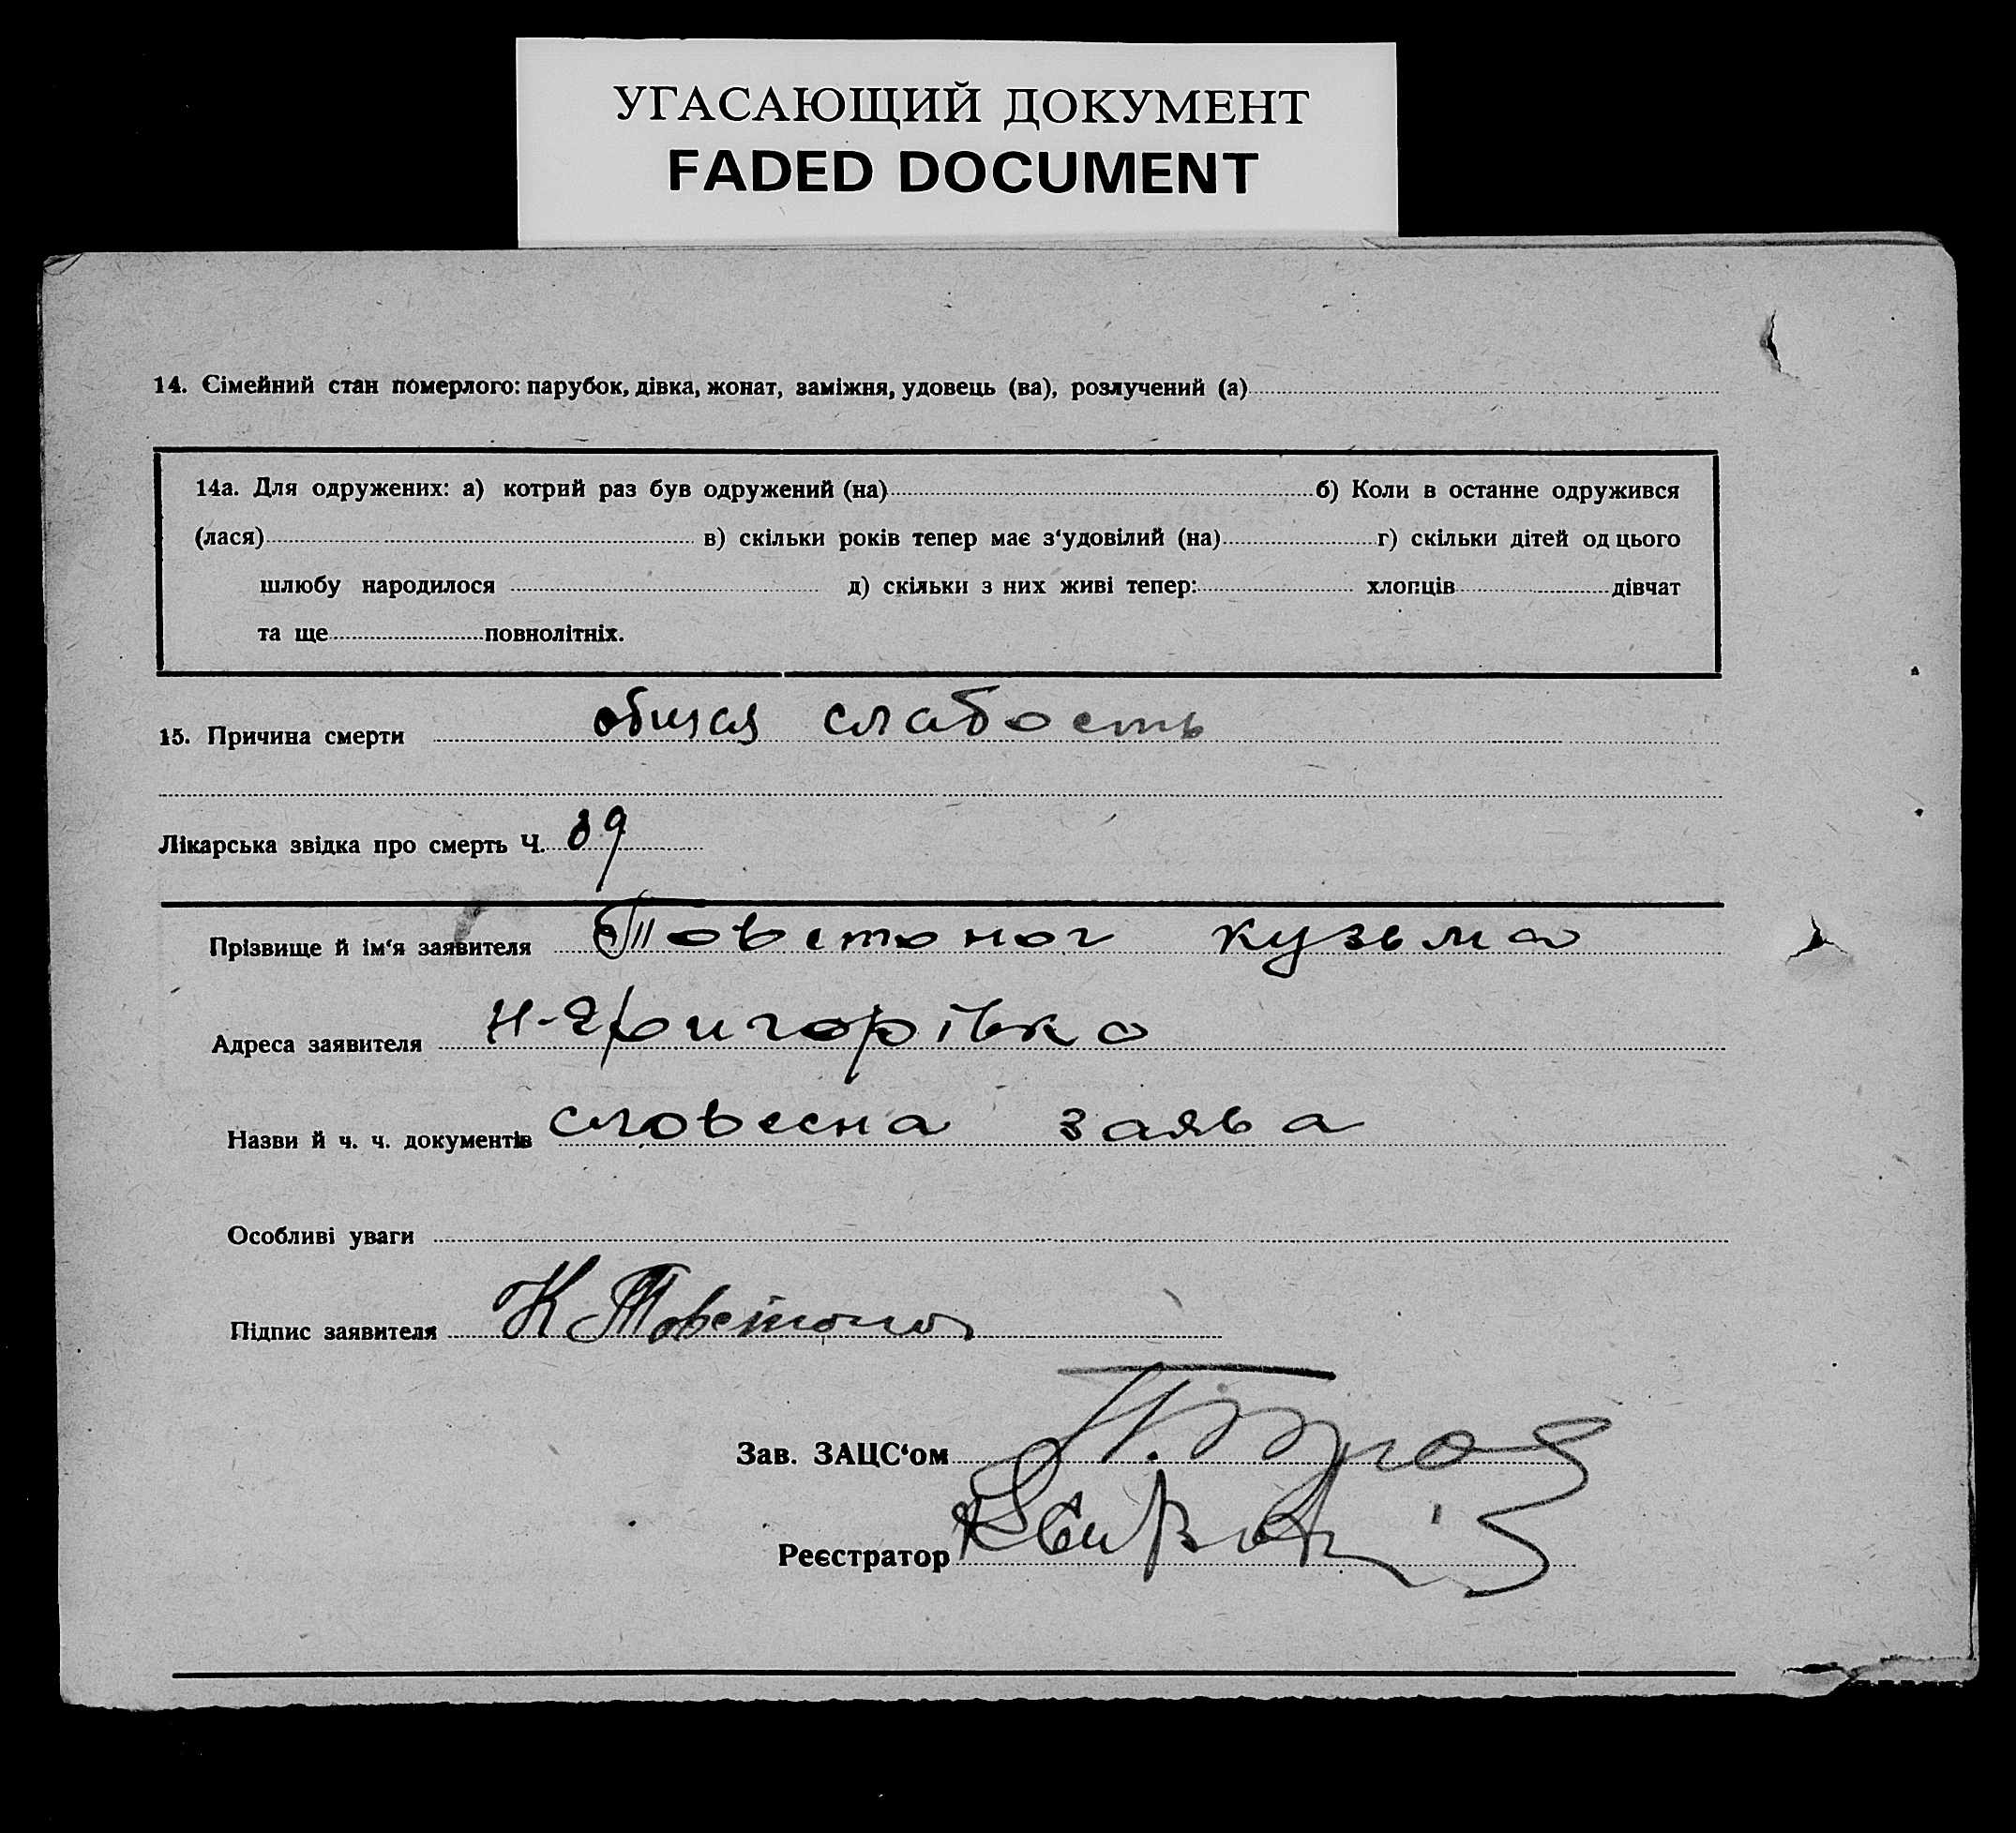 УГАСАЮЩИЙ ДОКУМЕНТ
FADED DOCUMENT
14. Сімейний стан померлого: парубок, дівка, жонат, заміжня, удовець (ва), розлучений (а)
14а. Для одружених: а) котрий раз був одружений (на) б) Коли в останне одружився
(лася) в) скільки років тепер має з‘удовілий (на) г) скільки дітей од цього
шлюбу народилося д) скільки з них живі тепер: хлопців дівчат
та ще повнолітніх.
15. Причина смерти общая слабость
Лікарська звідка про смерть Ч. 89
Прізвище й ім‘я заявителя Товстоног кузьма
Адреса заявителя Н-Григорівка
Назви й ч. ч. документів словесна заява
Особливі уваги
Підпис заявителя К Товстоног
Зав. ЗАЦС‘ом
Реєстратор